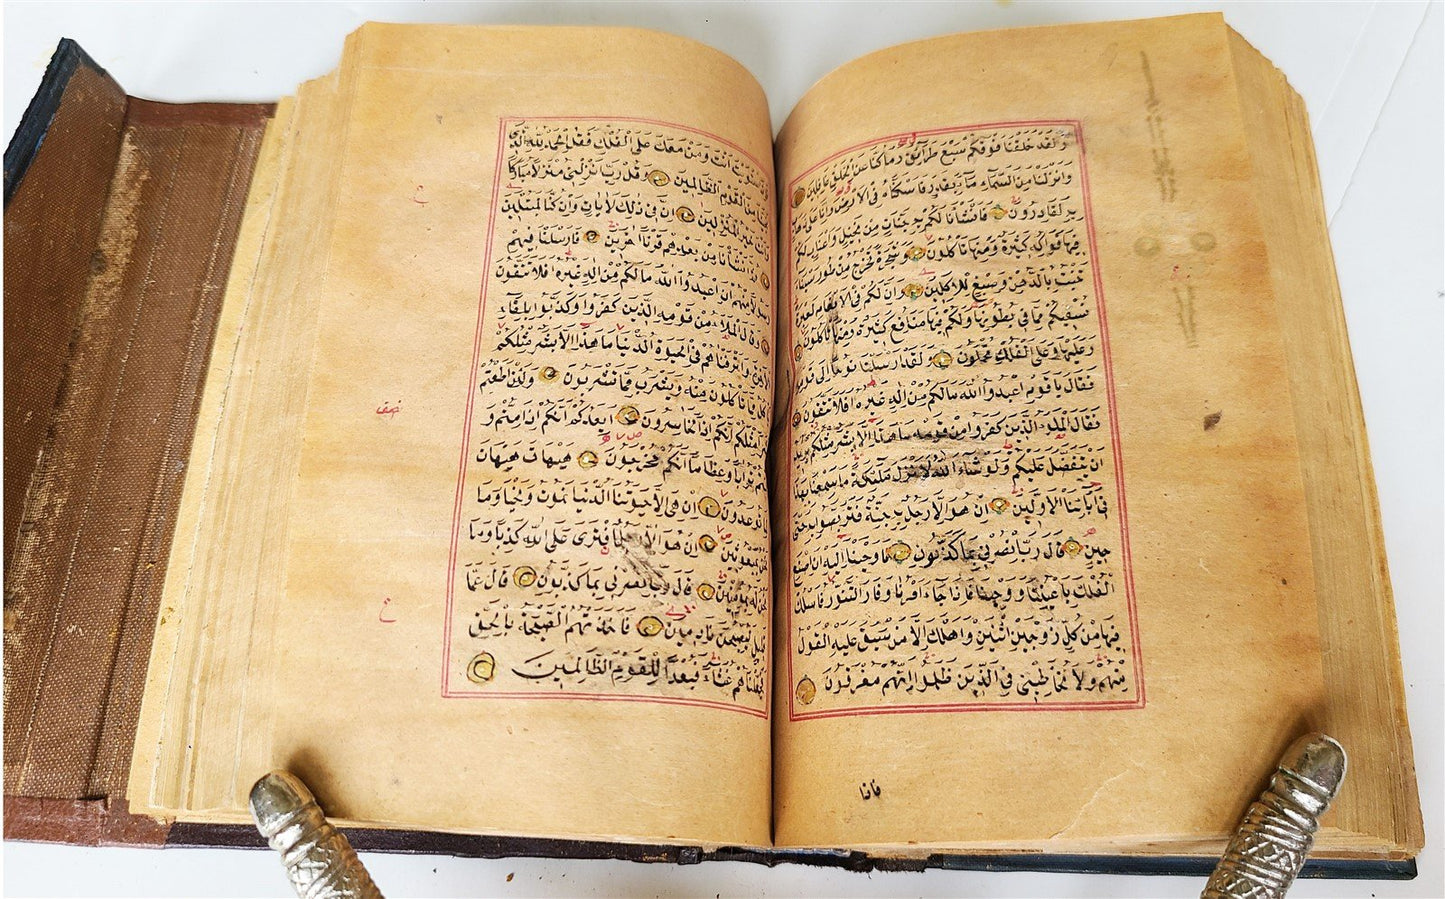 وَلَقَدْ خَلَقْنَا فَوْقَكُمْ سَبْعَ طَرَآئِقَ وَمَا كُنَّا عَنِ الْخَلْقِ غَافِلِينَ
وَاَنْزَلْنَا مِنَ السَّمَآءِ مَآءً بِقَدَرٍ فَاَسْكَنَّاهُ فِى الْاَرْضِ وَاِنَّا عَلٰى ذَهَابٍ
بِهِ لَقَادِرُونَ فَاَنْشَأْنَا لَكُمْ بِهِ جَنَّاتٍ مِنْ نَخِيلٍ وَاَعْنَابٍ لَكُمْ
فِيهَا فَوَاكِهُ كَثِيرَةٌ وَمِنْهَا تَأْكُلُونَ وَشَجَرَةً تَخْرُجُ مِنْ طُورِ سَيْنَآءَ
تَنْبُتُ بِالدُّهْنِ وَصِبْغٍ لِلْاٰكِلِينَ وَاِنَّ لَكُمْ فِى الْاَنْعَامِ لَعِبْرَةً
نُسْقِيكُمْ مِمَّا فِى بُطُونِهَا وَلَكُمْ فِيهَا مَنَافِعُ كَثِيرَةٌ وَمِنْهَا تَأْكُلُونَ
وَعَلَيْهَا وَعَلَى الْفُلْكِ تُحْمَلُونَ وَلَقَدْ اَرْسَلْنَا نُوحًا اِلٰى قَوْمِهِ
فَقَالَ يَا قَوْمِ اعْبُدُوا اللّٰهَ مَا لَكُمْ مِنْ اِلٰهٍ غَيْرُهُ اَفَلَا تَتَّقُونَ
فَقَالَ الْمَلَؤُا الَّذِينَ كَفَرُوا مِنْ قَوْمِهِ مَا هٰذَا اِلَّا بَشَرٌ مِثْلُكُمْ يُرِيدُ
اَنْ يَتَفَضَّلَ عَلَيْكُمْ وَلَوْ شَآءَ اللّٰهُ لَاَنْزَلَ مَلٰئِكَةً مَا سَمِعْنَا بِهٰذَا
فِى اٰبَآئِنَا الْاَوَّلِينَ اِنْ هُوَ اِلَّا رَجُلٌ بِهِ جِنَّةٌ فَتَرَبَّصُوا بِهِ حَتّٰى
حِينٍ قَالَ رَبِّ انْصُرْنِى بِمَا كَذَّبُونِ فَاَوْحَيْنَا اِلَيْهِ اَنِ اصْنَعِ
الْفُلْكَ بِاَعْيُنِنَا وَوَحْيِنَا فَاِذَا جَآءَ اَمْرُنَا وَفَارَ التَّنُّورُ فَاسْلُكْ
فِيهَا مِنْ كُلٍّ زَوْجَيْنِ اثْنَيْنِ وَاَهْلَكَ اِلَّا مَنْ سَبَقَ عَلَيْهِ الْقَوْلُ
مِنْهُمْ وَلَا تُخَاطِبْنِى فِى الَّذِينَ ظَلَمُوا اِنَّهُمْ مُغْرَقُونَ
فاذا
فَاِذَا اسْتَوَيْتَ اَنْتَ وَمَنْ مَعَكَ عَلَى الْفُلْكِ فَقُلِ الْحَمْدُ لِلّٰهِ الَّذِى
نَجّٰينَا مِنَ الْقَوْمِ الظَّالِمِينَ وَقُلْ رَبِّ اَنْزِلْنِى مُنْزَلًا مُبَارَكًا
وَاَنْتَ خَيْرُ الْمُنْزِلِينَ اِنَّ فِى ذٰلِكَ لَاٰيَاتٍ وَاِنْ كُنَّا لَمُبْتَلِينَ
ثُمَّ اَنْشَأْنَا مِنْ بَعْدِهِمْ قَرْنًا اٰخَرِينَ فَاَرْسَلْنَا فِيهِمْ
رَسُولًا مِنْهُمْ اَنِ اعْبُدُوا اللّٰهَ مَا لَكُمْ مِنْ اِلٰهٍ غَيْرُهُ اَفَلَا تَتَّقُونَ
وَقَالَ الْمَلَاُ مِنْ قَوْمِهِ الَّذِينَ كَفَرُوا وَكَذَّبُوا بِلِقَآءِ
الْاٰخِرَةِ وَاَتْرَفْنَاهُمْ فِى الْحَيٰوةِ الدُّنْيَا مَا هٰذَا اِلَّا بَشَرٌ مِثْلُكُمْ
يَأْكُلُ مِمَّا تَأْكُلُونَ مِنْهُ وَيَشْرَبُ مِمَّا تَشْرَبُونَ وَلَئِنْ اَطَعْتُمْ
بَشَرًا مِثْلَكُمْ اِنَّكُمْ اِذًا لَخَاسِرُونَ اَيَعِدُكُمْ اَنَّكُمْ اِذَا مِتُّمْ وَ
كُنْتُمْ تُرَابًا وَعِظَامًا اَنَّكُمْ مُخْرَجُونَ هَيْهَاتَ هَيْهَاتَ
لِمَا تُوعَدُونَ اِنْ هِىَ اِلَّا حَيَاتُنَا الدُّنْيَا نَمُوتُ وَنَحْيَا وَمَا
نَحْنُ بِمَبْعُوثِينَ اِنْ هُوَ اِلَّا رَجُلٌ افْتَرٰى عَلَى اللّٰهِ كَذِبًا وَمَا
نَحْنُ لَهُ بِمُؤْمِنِينَ قَالَ رَبِّ انْصُرْنِى بِمَا كَذَّبُونِ قَالَ عَمَّا
قَلِيلٍ لَيُصْبِحُنَّ نَادِمِينَ فَاَخَذَتْهُمُ الصَّيْحَةُ بِالْحَقِّ
فَجَعَلْنَاهُمْ غُثَآءً فَبُعْدًا لِلْقَوْمِ الظَّالِمِينَ
ع
ع